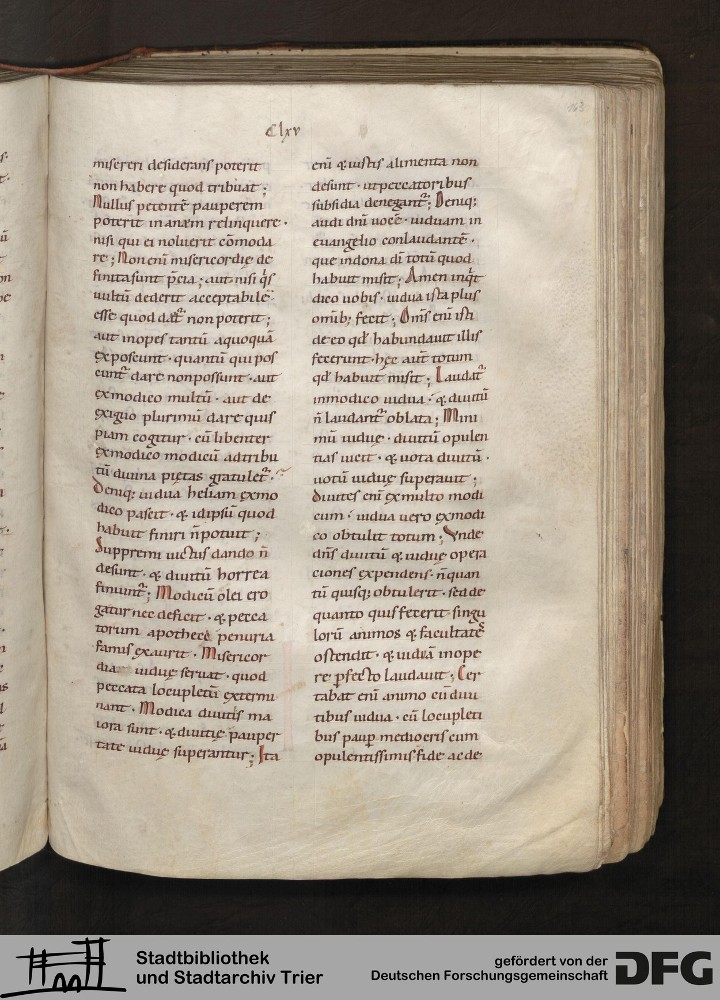 Clxv
163
misereri desiderans poterit
non habere quod tribuat ;
Nullus petentē pauperem
poterit inanem relinquere ·
nisi qui ei noluerit cōmoda
re ; Non enī misericordię de
finita sunt p̄cia ; aut nisi q̇s
vultū dederit acceptabile
esse quod dat᷒ non poterit ;
aut inopes tantū aquoquā
exposcunt · quantū qui pos
cunt᷒ dare nonpossunt · aut
exmodico multū · aut de
exiguo plurimū dare quis
piam cogitur · cū libenter
exmodico modicū adtribu
tū divina pietas gratulet᷒ ·
Deniq; vidua heliam exmo
dico pascit · & idipsū quod
habuit finiri n̄potuit ;
Suppremi victus dando n̄
desunt · & divitū horrea
finiunt᷒ ; Modicū olei ero
gatur nec deficit · & pecca
torum apothecę penuria
famis exaurit · Misericor
dia viduę servat · quod
peccata locupletū extermi
nant · Modica divitiis ma
iora sunt · & divitię pauper
tate viduę superantur ; Ita
enī & iustis alimenta non
desunt · ut peccatoribus
subsidia denegant᷒ ; Deniq;
audi dnī vocē · viduam in
evangelio conlaudantē ·
que indona dī totū quod
habuit misit ; Amen inq̇t
dico vobis · vidua ista plus
omib; fecit ; Oms̄ enī isti
de eo qd̄ habundavit illis
fecerunt · hęc aut̄ totum
qd̄ habuit misit ; Laudat᷒
inmodico vidua · & divitū
n̄ laudant᷒ oblata ; Mini
mū viduę · divitū opulen
tias vicit · & vota divitū ·
votū viduę superavit ;
Divites enī exmulto modi
cum · vidua vero exmodi
co obtulit totum ; Unde
dn̄s divitū & viduę opera
ciones expendens · n̄quan
tū quisq; obtulerit · sed de
quanto quis fecerit singu
lorū animos & facultates
ostendit · & viduā inope
re pfecto laudavit ; Cer
tabat enī animo cū divi
tibus vidua · cū locupleti
bus paup̄ mediocris cum
opulentissimis fide ac de
Stadtbibliothek
und Stadtarchiv Trier
gefördert von der
Deutschen Forschungsgemeinschaft
DFG